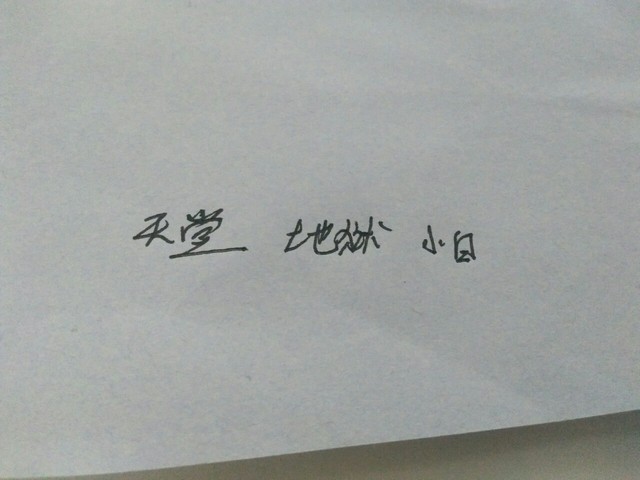 天堂 地狱 小白